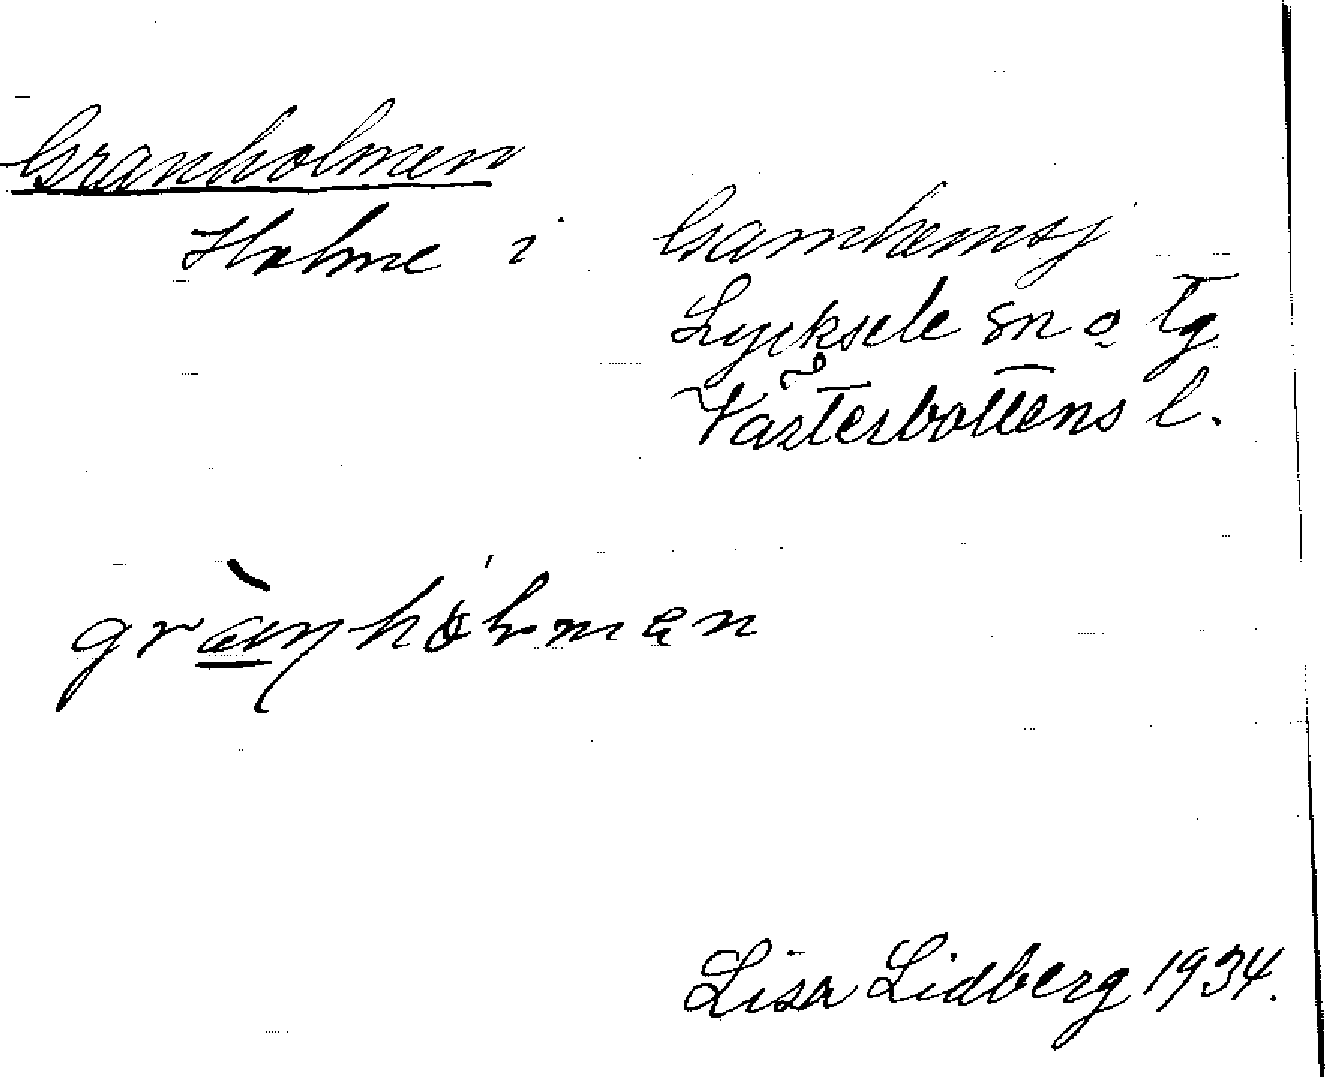 Granholmen
Holme i Gamhemsj
Lycksele sn o tg
Västerbottens l.
Lisa Lidberg 1934.